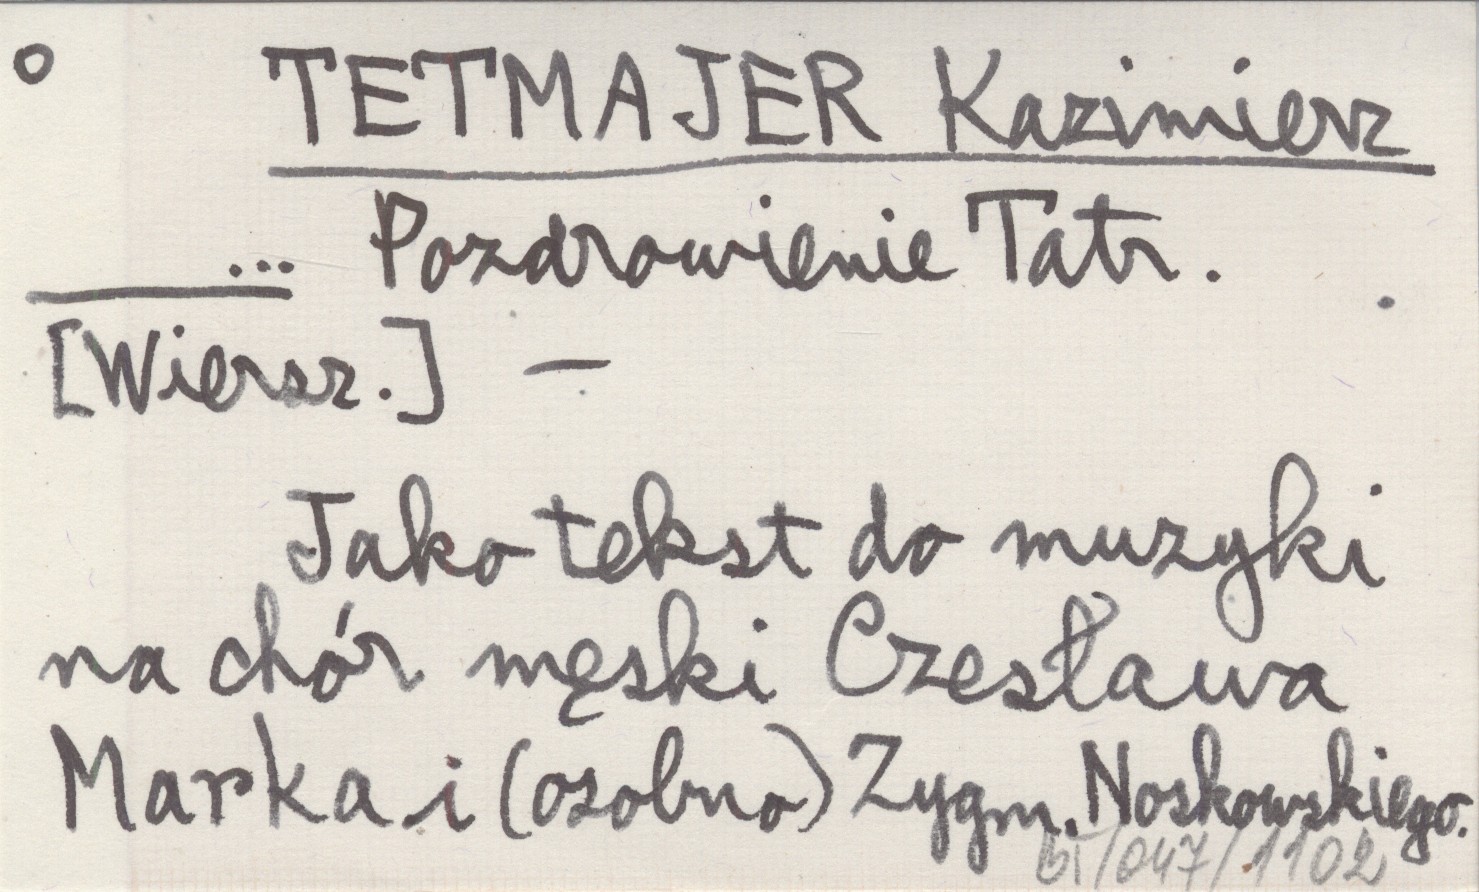 TETMAJER Kazimierz
... Pozdrowienie Tatr.
[Wiersz.] —
Jako tekst do muzyki
na chór męski Czesława
Marka i (osobno) Zygm. Noskowskiego.
/047/1102